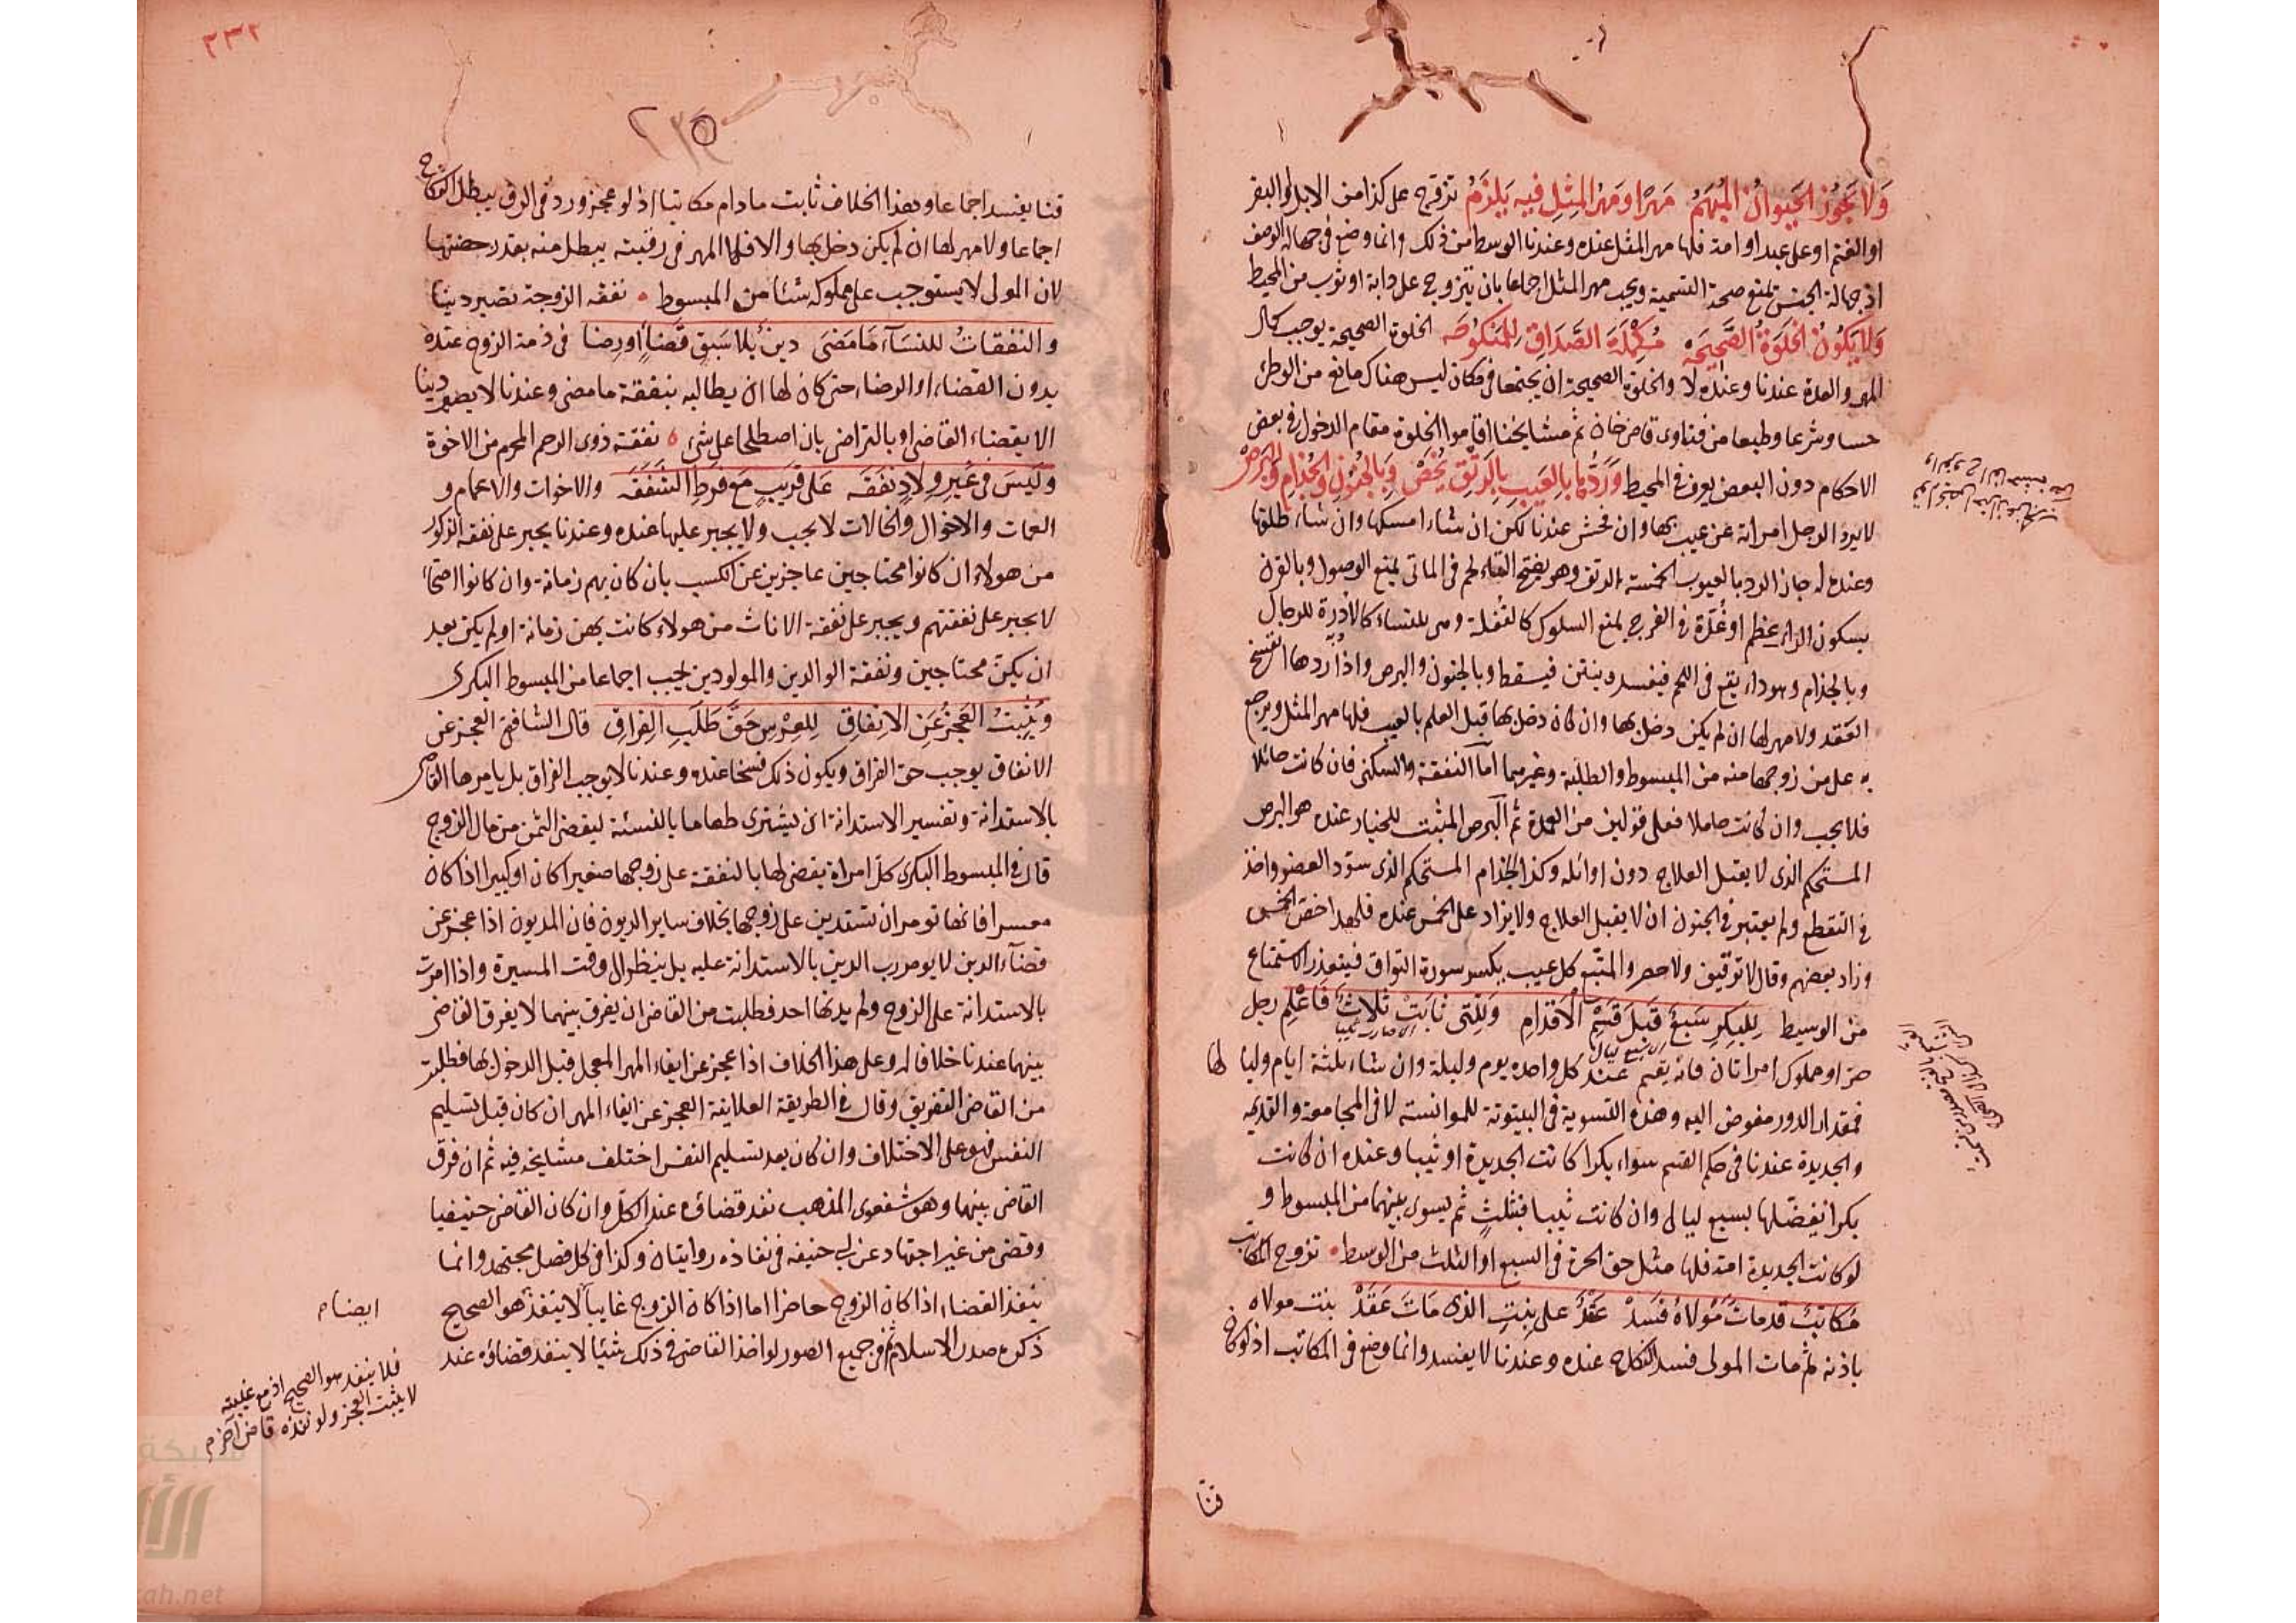 وَلَا يَجُوزُ الحَيَوانُ المُبْهَمُ مَهْرًا وَمَهْرُ المِثْلِ فيهِ يَلزَمُ تزوج على كذا من الابل او البقر
او الغنم او على عبد او امة فلها مهر المثل عنده وعندنا الوسط من ذلك وانما وضع في جهالة الوصف
اذ جهالة الجنس تمنع صحة التسمية ويجب مهر المثل اجماعا بان يتزوج على دابة او ثوب من المحيط
وَلَا تَكُونُ الخَلوَةُ الصَّحِيحَهْ مُكْمِلَةَ الصَّدَاقِ لِلمَنكُوحَهْ الخلوة الصحيحة يوجب كمال
المهر والعدة عندنا وعنده لا والخلوة الصحيحة ان يجتمعا في مكان ليس هناك مانع من الوطئ
حسا وشرعا وطبعا من فتاوى قاضى خان ثم مشايخنا اقاموا الخلوة مقام الدخول في بعض
الاحكام دون البعض يعرف في المحيط وَرَدُّهَا بِالعَيبِ بِالرَّتْقِ يُخَصّْ وَبِالجُنُونِ وَالجُذَامِ وَالبَرَصْ
لا يرد الرجل امراته عن عيب بها وان فحش عندنا لكن ان شاء امسكها وان شاء طلقها
وعنده له جاز الرد بالعيوب الخمسة الرتق وهو بفتح التاء لحم في الماتى يمنع الوصول وبالقرن
بسكون الراء عظم او غدة في الفرج يمنع السلوك كالعفلة وهى للنساء كالأدرة للرجال
وبالجذام وهو داء يقع في اللحم فيفسد وينتن فيسقط وبالجنون والبرص واذا ردها انفسخ
العقد ولا مهر لها ان لم يكن دخل بها وان كان دخل بها قبل العلم بالعيب فلها مهر المثل ويرجع
به على من زوجها منه من المبسوط والطلبة وغيرهما أما النفقة والسكنى فان كانت حائلا
فلا يجب وان كانت حاملا فعلى قولين من العدة ثم البرص المثبت للخيار عنده هو البرص
المستحكم الذى لا يقبل العلاج دون اوائله وكذا الجذام المستحكم الذى سوّد العضو واخذ
في التقطع ولم يعتبر في الجنون ان لا يقبل العلاج ولا يزاد على الخمس عنده فلهذا خص الخمس
وزاد بعضهم وقال لا توقيف ولا حصر والمتبع كل عيب يكسر سورة التواق فيتعذر الاستمتاع
من الوسيط لِلبِكرِ سَبعٌ قَبلَ قَسْمِ الأَقدَامِ وَلِلَّتى ثابَتْ ثَلاثٌ فَاعْلَمِ رجل
حر او مملوك له امراتان فانه يقيم عند كل واحدة يوم وليلة وان شاء ثلثة ايام وليا لها
فمقدار الدور مفوض اليه وهذه التسوية في البيتوتة للموانسة لا في المجامعة والقديمة
والجديدة عندنا في حكم القسم سواء بكرا كانت الجديدة او ثيبا وعنده ان كانت
بكرا يفضلها بسبع ليالى وان كانت ثيبا فبثلث ثم يسوى بينهما من المبسوط و
لو كانت الجديدة امة فلها مثل حق الحرة في السبع او الثلث من الوسيط تزوج المكاتب
مُكَاتبٌ قد ماتَ مَوْلاهُ فَسَدْ عَقْدٌ على بِنتِ الذى مَاتَ عَقَدْ بنت مولاه
باذنه ثم مات المولى فسد النكاح عنده وعندنا لا يفسد وانما وضع في المكاتب اذ لو كان
قنا
٢٣٢
قنا يفسد اجماعا وهذا الخلاف ثابت ما دام مكاتبا اذ لو عجز ورد في الرق يبطل النكاح
اجماعا ولا مهر لها ان لم يكن دخل بها والا فلها المهر في رقبته يبطل منه بقدر حصتها
لان المولى لا يستوجب على مملوكه شئا من المبسوط نفقة الزوجة تصير دينا
والنفقاتُ للنسَآءِ مَا مَضَى دينٌ بلا سَبقِ قضَاءٍ او رضا في ذمة الزوج عنده
بدون القضاء او الرضاء حتى كان لها ان يطالبه بنفقة ما مضى وعندنا لا يصير دينا
الا بقضاء القاضى او بالتراضى بان اصطلحا على شئ نفقة ذوى الرحم المحرم من الاخوة
وَلَيسَ في غَيرِ وِلادٍ نفَقَهْ عَلى قريبٍ مَع فرطِ الشَّفَقَهْ والاخوات والاعمام و
العمات والاخوال والخالات لا يجب ولا يجبر عليها عنده وعندنا يجبر على نفقة الذكور
من هولاء ان كانوا محتاجين عاجزين عن الكسب بان كان بهم زمانة وان كانوا اصحاء
لا يجبر على نفقتهم ويجبر على نفقة الاناث من هولاء كانت بهن زمانة او لم يكن بعد
ان يكنّ محتاجين ونفقة الوالدين والمولودين يجب اجماعا من المبسوط البكرى
وَيُثبِتُ العَجزُ عَنِ الانفاقِ لِلعِرْسِ حَقَّ طَلَبِ الفِراقِ قال الشافعى العجز عن
الانفاق يوجب حق الفراق ويكون ذلك فسخا عنده وعندنا لا يوجب الفراق بل يامرها القاضى
بالاستدانة وتفسير الاستدانة ان يشترى طعاما بالنسئة ليقضى الثمن من مال الزوج
قال في المبسوط البكرى كل امراة يقضى لها بالنفقة على زوجها صغيرا كان او كبيرا اذا كان
معسرا فانها تومر ان تستدين على زوجها بخلاف ساير الديون فان المديون اذا عجز عن
قضآء الدين لا يومر رب الدين بالاستدانة عليه بل ينظر الى وقت الميسرة واذا امرت
بالاستدانة على الزوج ولم يدنها احد فطلبت من القاضى ان يفرق بينهما لا يفرق القاضى
بينهما عندنا خلافا له وعلى هذا الخلاف اذا عجز عن ايفاء المهر المعجل قبل الدخول بها فطلبت
من القاضى التفريق وقال في الطريقة العلائية العجز عن ايفاء المهر ان كان قبل تسليم
النفس فهو على الاختلاف وان كان بعد تسليم النفس اختلف مشايخه فيه ثم ان فرق
القاضى بينهما وهو شفعوى المذهب نفد قضاؤه عند الكل وان كان القاضى حنيفيا
وقضى من غير اجتهاد عن ابى حنيفه في نفاذه روايتان وكذا في كل فصل مجتهد وانما
ينفذ القضاء اذا كان الزوج حاضرا اما اذا كان الزوج غايبا لا ينفذ هو الصحيح
ذكره صدر الاسلام ثم في جميع الصور لو اخذ القاضى في ذلك شيئا لا ينفذ قضاؤه عند
ايضا م
فلا ينفذ هو الصحيح اذ مع غيبته
لا يثبت العجز ولو نفذه قاض آخر م